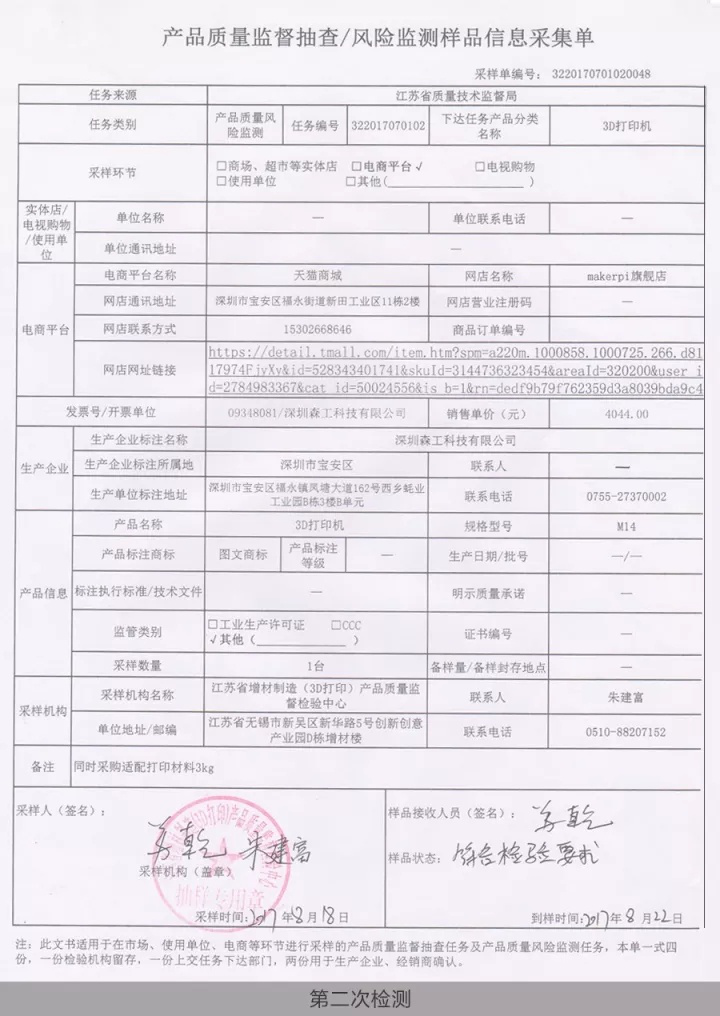 产品质量监督抽查/风险监测样品信息采集单
采样单编号： 3220170701020048
任务来源 江苏省质量技术监督局
任务类别 产品质量风险监测 任务编号 322017070102 下达任务产品分类名称 3D打印机
采样环节 □商场、超市等实体店 □电商平台√ □电视购物
□使用单位 □其他(____________________)
实体店/电视购物/使用单位 单位名称 — 单位联系电话 —
单位通讯地址 —
电商平台 电商平台名称 天猫商城 网店名称 makerpi旗舰店
网店通讯地址 深圳市宝安区福永街道新田工业区11栋2楼 网店营业注册码 —
网店联系方式 15302668646 商品订单编号
网店网址链接 https://detail.tmall.com/item.htm?spm=a220m.1000858.1000725.266.d81
17974FjyXv&id=528343401741&skuId=3144736323454&areaId=320200&user_i
d=2784983367&cat_id=50024556&is_b=1&rn=dedf9b79f762359d3a8039bda9c4
发票号/开票单位 09348081/深圳森工科技有限公司 销售单价（元） 4044.00
生产企业 生产企业标注名称 深圳森工科技有限公司
生产企业标注所属地 深圳市宝安区 联系人 —
生产单位标注地址 深圳市宝安区福永镇凤塘大道162号西乡蚝业工业园B栋3楼B单元 联系电话 0755-27370002
产品信息 产品名称 3D打印机 规格型号 M14
产品标注商标 图文商标 产品标注等级 — 生产日期/批号 —/—
标注执行标准/技术文件 — 明示质量承诺 —
监管类别 □工业生产许可证 □CCC
√其他（______________） 证书编号 —
采样数量 1台 备样量/备样封存地点 —
采样机构 采样机构名称 江苏省增材制造（3D打印）产品质量监督检验中心 联系人 朱建富
单位地址/邮编 江苏省无锡市新吴区新华路5号创新创意产业园D栋增材楼 联系电话 0510-88207152
备注 同时采购适配打印材料3kg
采样人（签名）： 朱建富
采样机构（盖章）
抽样专用章
采样时间：2017年8月18日
样品接收人员（签名）：
样品状态： 符合检验要求
到样时间：2017年8月22日
注：此文书适用于在市场、使用单位、电商等环节进行采样的产品质量监督抽查任务及产品质量风险监测任务，本单一式四
份，一份检验机构留存，一份上交任务下达部门，两份用于生产企业、经销商确认。
第二次检测